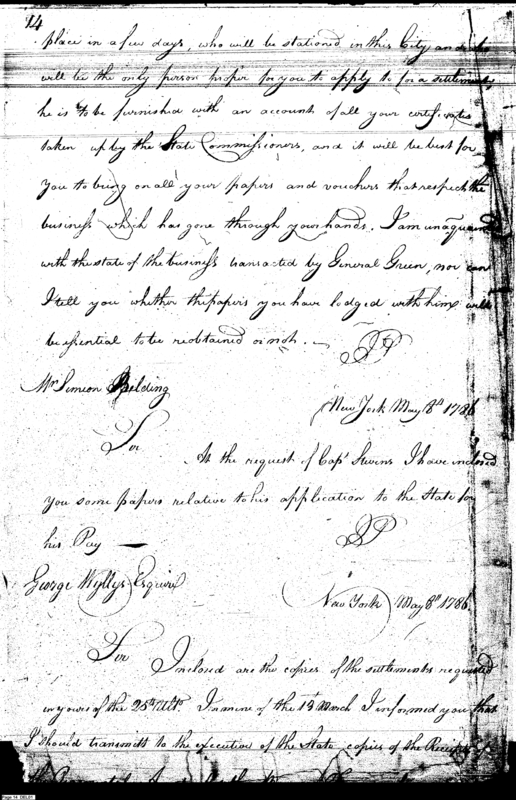 14
place in a few days, who will be stationed in this City and he
will be the only person proper for you to apply to for a settlement,
he is to be furnished with an account of all your certificates
taken up by the State Commissioners, and it will be best for
you to bring on all your papers and vouchers that respect the
business which has gone through your hands. I am unaquainted
with the state of the business transacted by General Green, nor can
I tell you whether the papers you have lodged with him will
be essential to be reobtained or not. —
JP
Mr Simeon Belding
New York May 8th 1786
Sir
At the request of Capt Stevens I have inclosed
you some papers relative to his application to the State for
his Pay —
JP
George Wyllys Esquire
New York May 8th 1786
Sir Inclosed are the copies of the settlements requested
in yours of the 25th Ulto. In mine of the 13th March I informed you that
I should transmitt to the executive of the State, copies of the Receipts of